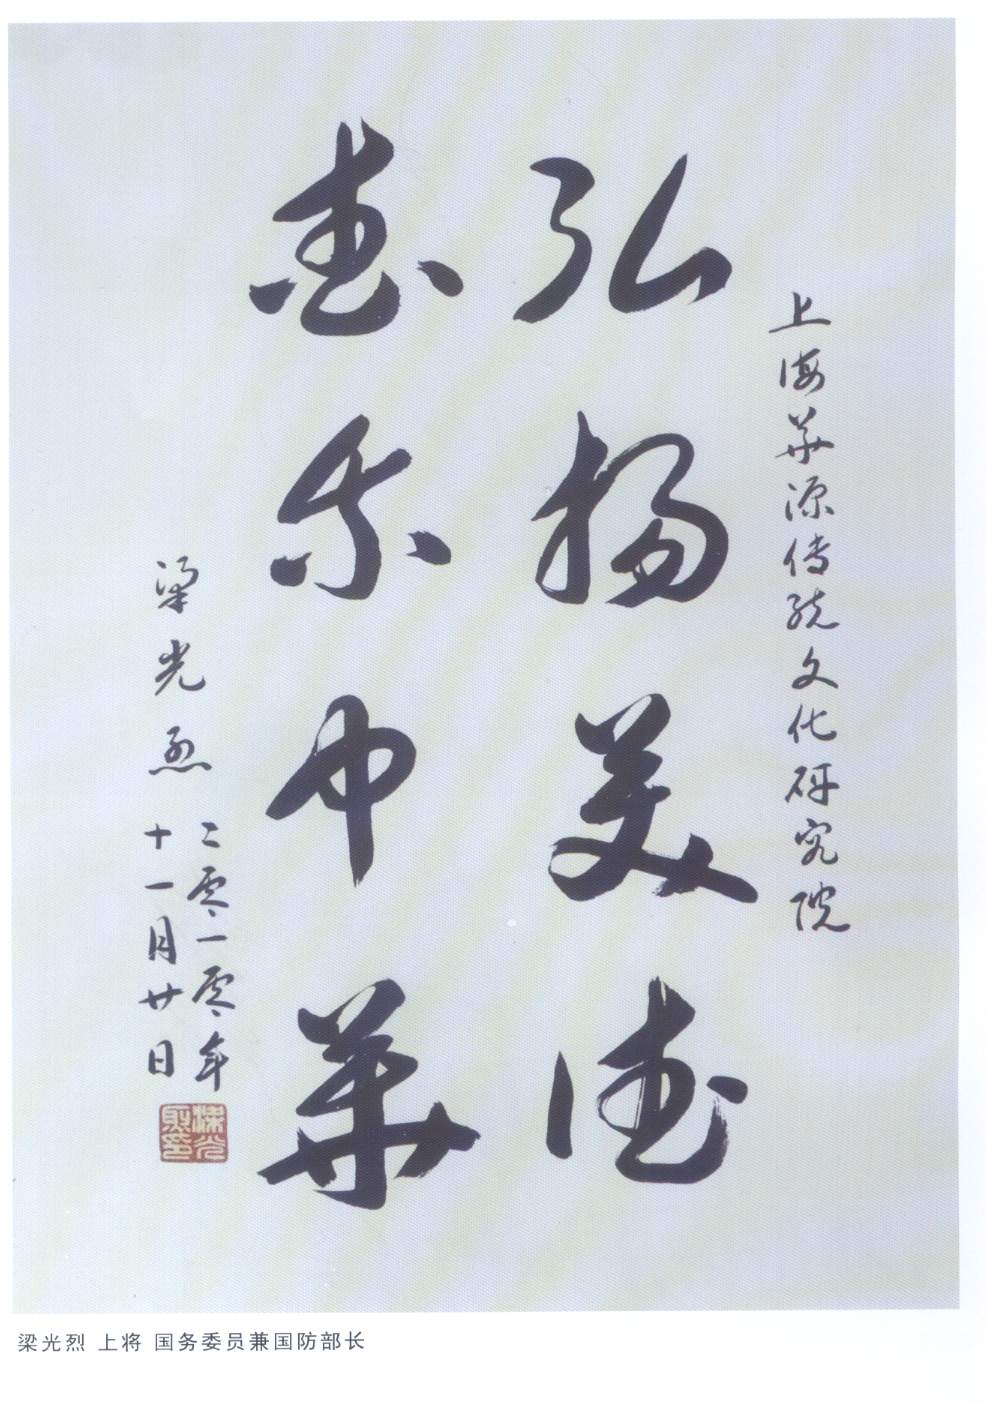 上海華源传统文化研究院
弘扬美德
惠尔中華
梁光烈
二零一零年
十一月廿日
梁光烈印
梁光烈 上将 国务委员兼国防部长